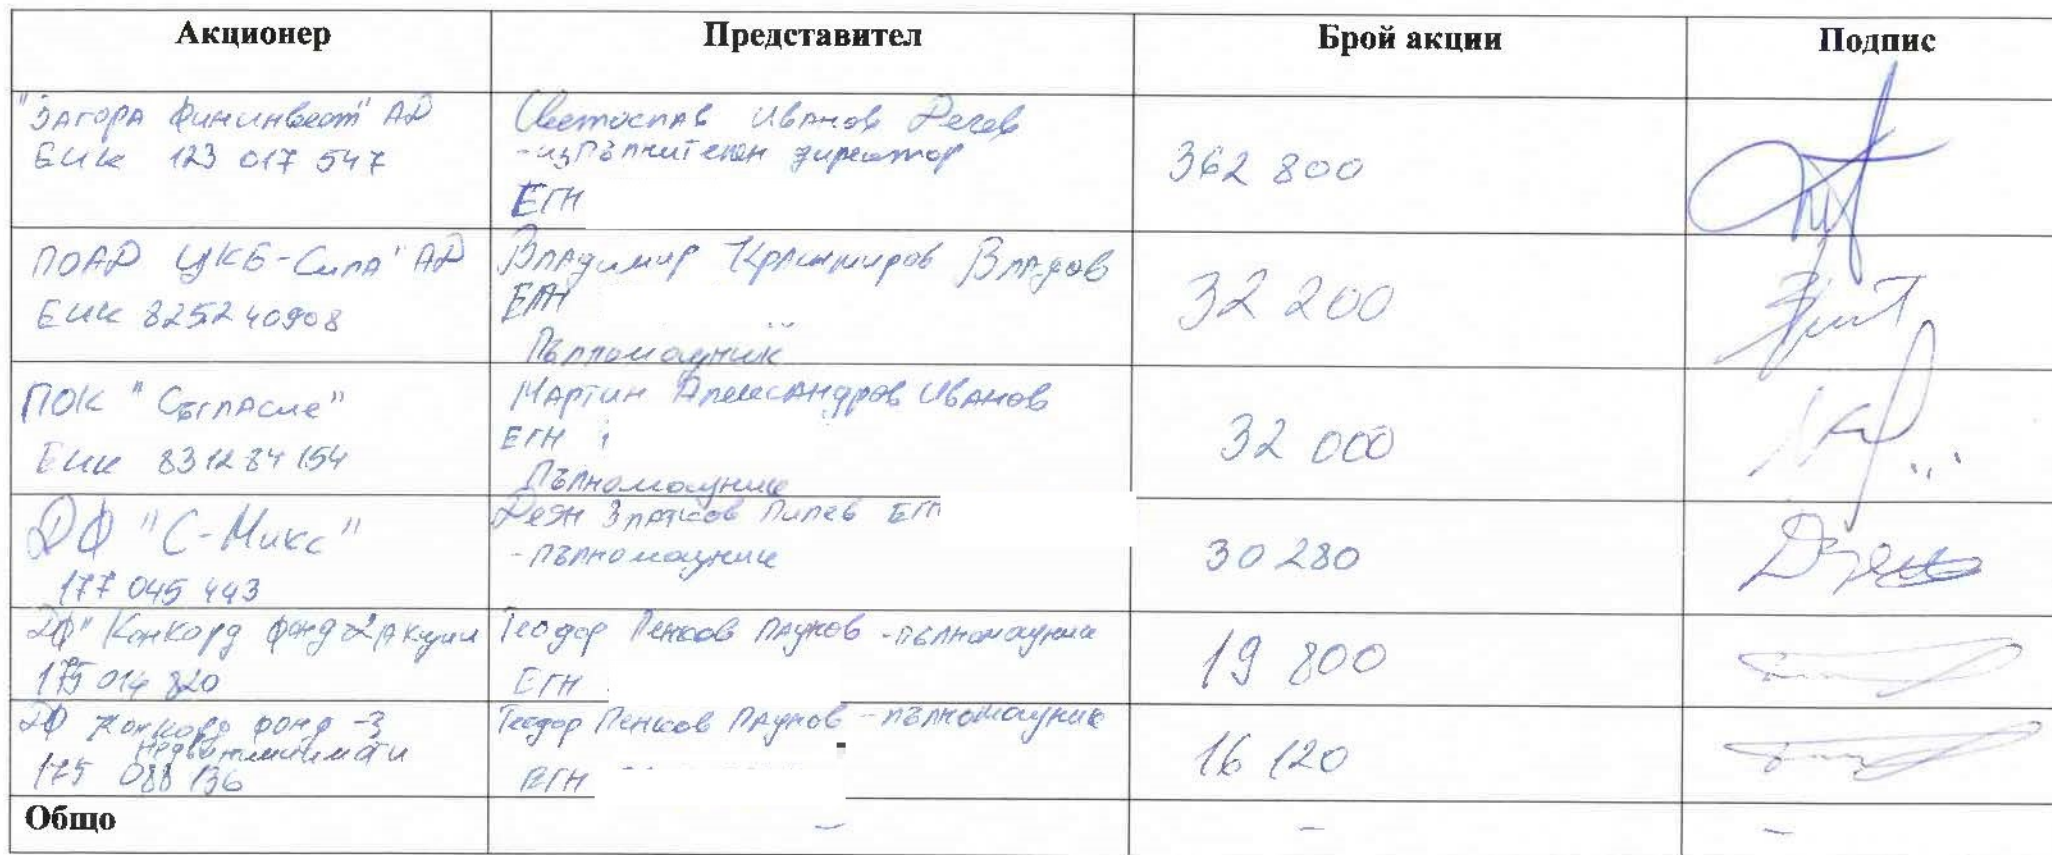 Акционер Представител Брой акции Подпис
"Загора Фининвест" АД
ЕИК 123 017 547
Светослав Иванов Дечев
-изпълнителен директор
ЕГН
362 800
ПОАД ЦКБ-Сила" АД
ЕИК 825240908
Владимир Красимиров Владов
ЕГН
Пълномощник
32 200
ПОК "Съгласие"
ЕИК 831284154
Мартин Александров Иванов
ЕГН
Пълномощник
32 000
ДФ "С-Микс"
177 045 443
Деян Златков Пилев ЕГН
-пълномощник
30 280
ДФ" Конкорд фонд-2 Акции
175 014 820
Теодор Пенков Паунов -пълномощник
ЕГН
19 800
ДФ Конкорд фонд -3
недвижими имоти
175 088 136
Теодор Пенков Паунов -пълномощник
ЕГН
16 120
Общо - - -